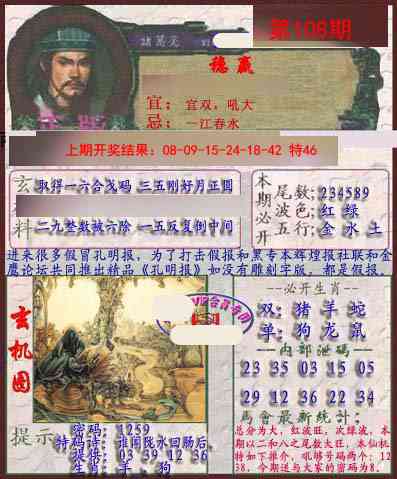 第108期
诸葛亮
稳赢
宜：宜双，吼大
忌：一江春水
上期开奖结果：08-09-15-24-18-42 特46
玄 取得一六合戊码 三五刚好月正圆
料 二九整数被六除 一五反复倒中间
本期必开
尾数：234589
波色：红 绿
五行：金 水 土
进来很多假冒孔明报，为了打击假报和黑专本辉煌报社联和金
鹰论坛共同推出精品《孔明报》如没有雕刻字版，都是假报。
玄机图
--必开生肖--
双：猪 羊 蛇
单：狗 龙 鼠
--内部泄码--
23 35 03 15 05
29 12 36 22 34
马會最新统计：
总分为大，红波旺，次绿波，本
期以二和八之尾数大旺，本仙机
特如下推介，吼够号码两个：12
38，今期送与大家的密码为8。
提示
密码：1259
特码诗：谁闻陇水回肠后，
提供：03 39 12 36
生肖：羊、狗